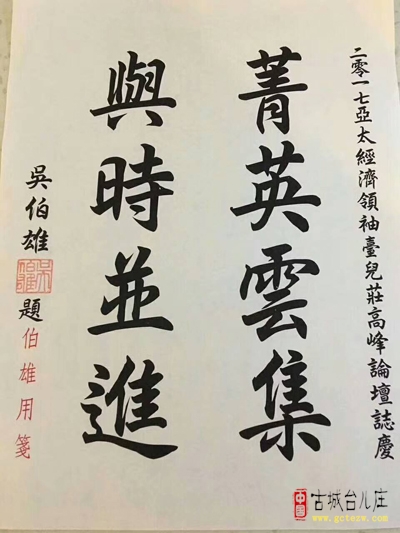 二零一七亞太經濟領袖臺兒莊高峰論壇誌慶
菁英雲集
與時並進
吳伯雄題
伯雄用箋
中國
古城台儿庄
www.gctezw.com